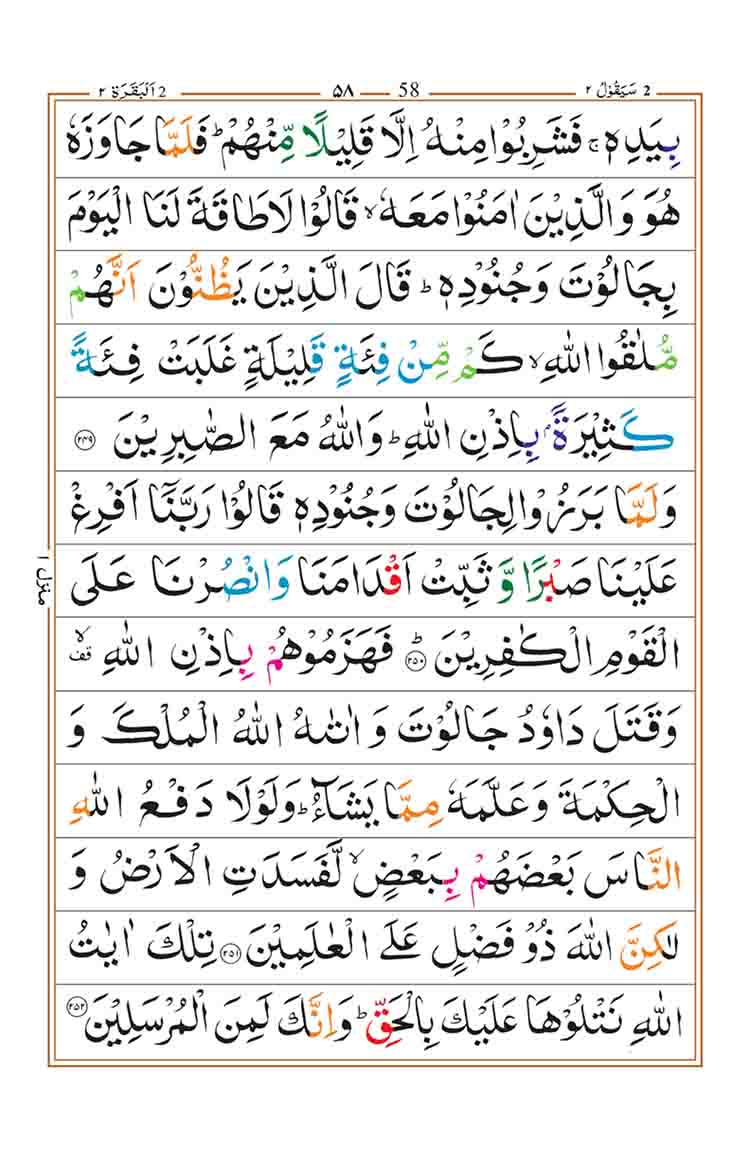 2 سَيَقُوۡلُ ٢ 58 ٥٨ 2 اَلۡبَقَرَة ٢
بِيَدِهٖ ۚ فَشَرِبُوۡا مِنۡهُ اِلَّا قَلِيۡلًا مِّنۡهُمۡ ؕ فَلَمَّا جَاوَزَهٗ
هُوَ وَالَّذِيۡنَ اٰمَنُوۡا مَعَهٗ ۙ قَالُوۡا لَا طَاقَةَ لَنَا الۡيَوۡمَ
بِجَالُوۡتَ وَجُنُوۡدِهٖ ؕ قَالَ الَّذِيۡنَ يَظُنُّوۡنَ اَنَّهُمۡ
مُّلٰقُوا اللّٰهِ ۙ کَمۡ مِّنۡ فِئَةٍ قَلِيۡلَةٍ غَلَبَتۡ فِئَةً
کَثِيۡرَةً ۢ بِاِذۡنِ اللّٰهِ ؕ وَاللّٰهُ مَعَ الصّٰبِرِيۡنَ ﴿۲۴۹﴾
وَلَمَّا بَرَزُوۡا لِجَالُوۡتَ وَجُنُوۡدِهٖ قَالُوۡا رَبَّنَاۤ اَفۡرِغۡ
عَلَيۡنَا صَبۡرًا وَّ ثَبِّتۡ اَقۡدَامَنَا وَانۡصُرۡنَا عَلَى
الۡقَوۡمِ الۡکٰفِرِيۡنَ ؕ ﴿۲۵۰﴾ فَهَزَمُوۡهُمۡ بِاِذۡنِ اللّٰهِ ۙ قف
وَقَتَلَ دَاوٗدُ جَالُوۡتَ وَ اٰتٰٮهُ اللّٰهُ الۡمُلۡكَ وَ
الۡحِکۡمَةَ وَعَلَّمَهٗ مِمَّا يَشَآءُ ؕ وَلَوۡلَا دَفۡعُ اللّٰهِ
النَّاسَ بَعۡضَهُمۡ بِبَعۡضٍ ۙ لَّفَسَدَتِ الۡاَرۡضُ وَ
لٰکِنَّ اللّٰهَ ذُوۡ فَضۡلٍ عَلَى الۡعٰلَمِيۡنَ ﴿۲۵۱﴾ تِلۡكَ اٰيٰتُ
اللّٰهِ نَتۡلُوۡهَا عَلَيۡكَ بِالۡحَـقِّ ؕ وَاِنَّكَ لَمِنَ الۡمُرۡسَلِيۡنَ ﴿۲۵۲﴾
منزل ۱